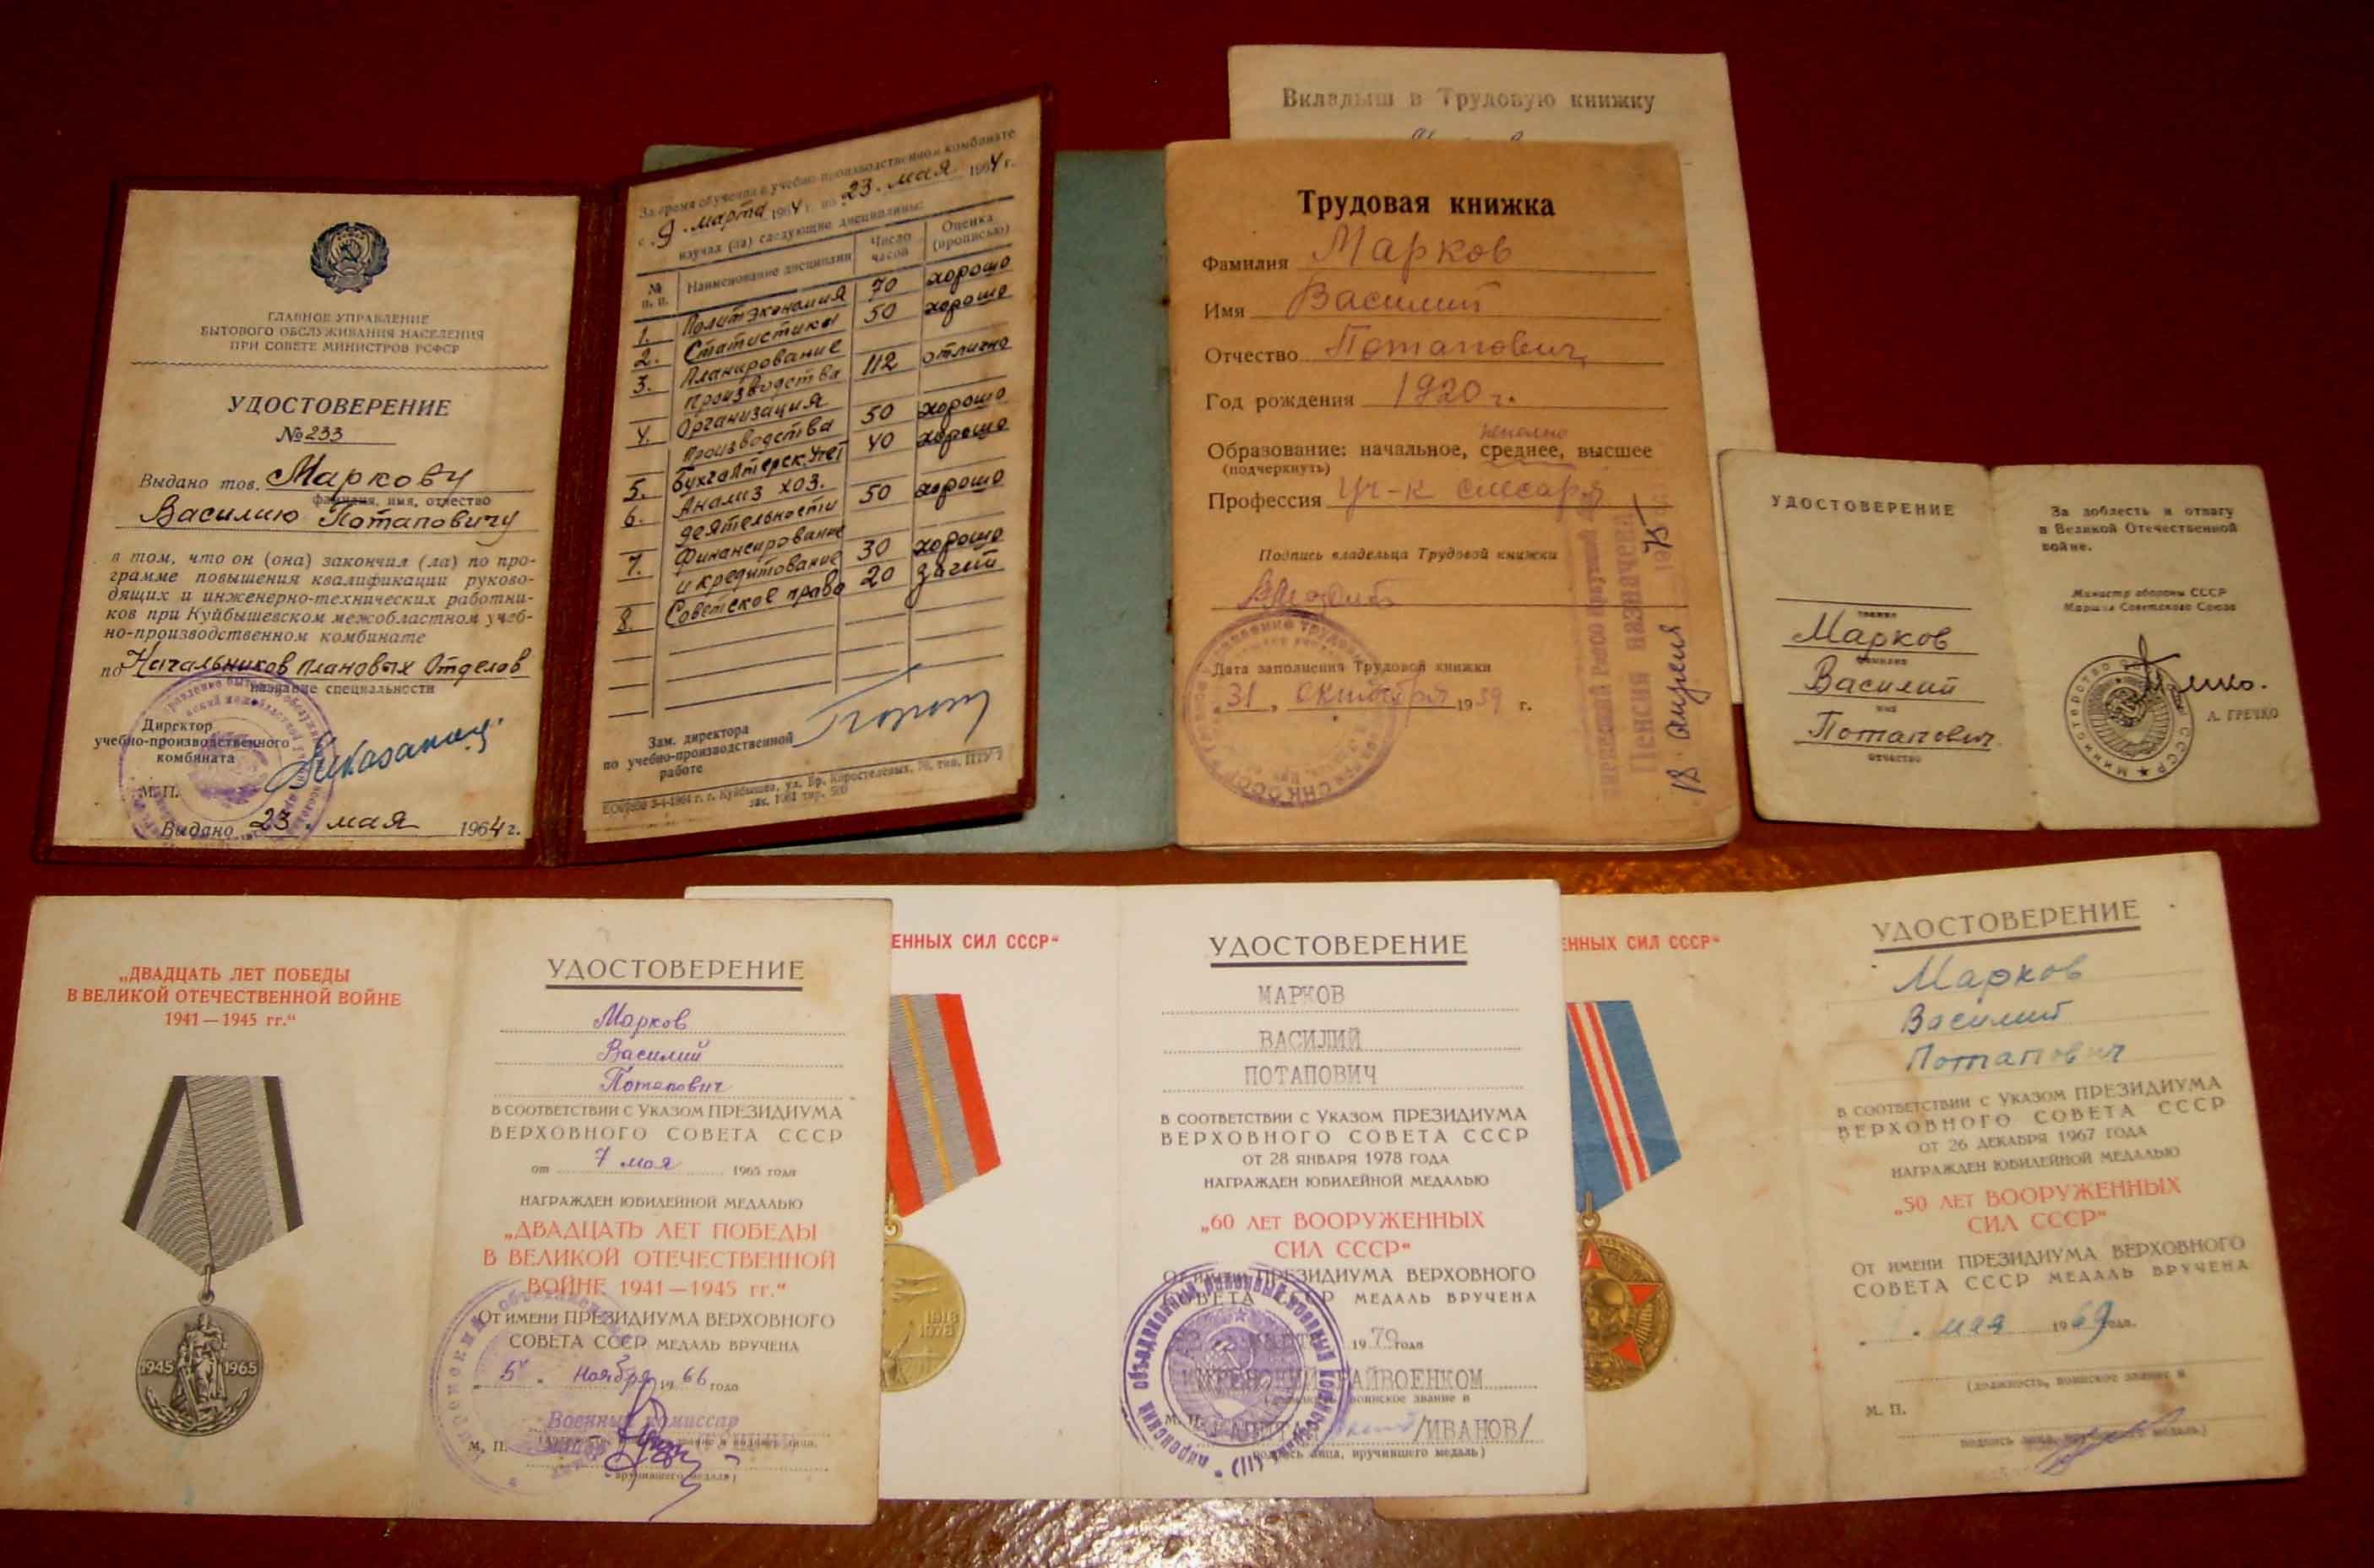 ГЛАВНОЕ УПРАВЛЕНИЕ
БЫТОВОГО ОБСЛУЖИВАНИЯ НАСЕЛЕНИЯ
ПРИ СОВЕТЕ МИНИСТРОВ РСФСР
УДОСТОВЕРЕНИЕ
№ 233
Выдано тов. Маркову
фамилия, имя, отчество
Василию Потаповичу
в том, что он (она) закончил (ла) по про-
грамме повышения квалификации руково-
дящих и инженерно-технических работни-
ков при Куйбышевском межобластном учеб-
но-производственном комбинате
по Начальников плановых Отделов
название специальности
Директор
учебно-производственного
комбината
М. П.
Выдано 23. мая 1964 г.
За время обучения в учебно-производственном комбинате
с 9. марта 1964 г. по 23. мая 1964 г.
изучал (ла) следующие дисциплины:
№ п. п. Наименование дисциплин Число часов Оценка (прописью)
1. Политэкономия 70 хорошо
2. Статистика 50 хорошо
3. Планирование
производства 112 отлично
4. Организация
производства 50 хорошо
5. Бухгалтерск. учет 40 хорошо
6. Анализ хоз.
деятельности 50 хорошо
7. Финансирование
и кредитование 30 хорошо
8. Советское право 20 зачет
Зам. директора
по учебно-производственной
работе
Вкладыш в Трудовую книжку
Трудовая книжка
Фамилия Марков
Имя Василий
Отчество Потапович
Год рождения 1920 г.
неполно
Образование: начальное, среднее, высшее
(подчеркнуть)
Профессия уч-к слесаря
Подпись владельца Трудовой книжки
Дата заполнения Трудовой книжки
31, октября 1939 г.
Пенсия назначена
18 апреля 1975
УДОСТОВЕРЕНИЕ
звание
Марков
фамилия
Василий
имя
Потапович
отчество
За доблесть и отвагу
в Великой Отечественной
войне.
Министр обороны СССР
Маршал Советского Союза
А. ГРЕЧКО
„ДВАДЦАТЬ ЛЕТ ПОБЕДЫ
В ВЕЛИКОЙ ОТЕЧЕСТВЕННОЙ ВОЙНЕ
1941—1945 гг.“
1945 1965
УДОСТОВЕРЕНИЕ
Марков
Василий
Потапович
В СООТВЕТСТВИИ С УКАЗОМ ПРЕЗИДИУМА
ВЕРХОВНОГО СОВЕТА СССР
от 7 мая 1965 года
НАГРАЖДЕН ЮБИЛЕЙНОЙ МЕДАЛЬЮ
„ДВАДЦАТЬ ЛЕТ ПОБЕДЫ
В ВЕЛИКОЙ ОТЕЧЕСТВЕННОЙ
ВОЙНЕ 1941—1945 гг.“
От имени ПРЕЗИДИУМА ВЕРХОВНОГО
СОВЕТА СССР МЕДАЛЬ ВРУЧЕНА
5 ноября 1966 года
Военный комиссар
М. П.
вручившего медаль)
ЕННЫХ СИЛ СССР“
1918
1978
УДОСТОВЕРЕНИЕ
МАРКОВ
ВАСИЛИЙ
ПОТАПОВИЧ
В СООТВЕТСТВИИ С УКАЗОМ ПРЕЗИДИУМА
ВЕРХОВНОГО СОВЕТА СССР
ОТ 28 ЯНВАРЯ 1978 ГОДА
НАГРАЖДЕН ЮБИЛЕЙНОЙ МЕДАЛЬЮ
„60 ЛЕТ ВООРУЖЕННЫХ
СИЛ СССР“
От имени ПРЕЗИДИУМА ВЕРХОВНОГО
СОВЕТА СССР МЕДАЛЬ ВРУЧЕНА
1979 года
РАЙВОЕНКОМ
воинское звание и
М. П. КАПИТАН /ИВАНОВ/
подпись лица, вручившего медаль)
ЕННЫХ СИЛ СССР“
УДОСТОВЕРЕНИЕ
Марков
Василий
Потапович
В СООТВЕТСТВИИ С УКАЗОМ ПРЕЗИДИУМА
ВЕРХОВНОГО СОВЕТА СССР
ОТ 26 ДЕКАБРЯ 1967 ГОДА
НАГРАЖДЕН ЮБИЛЕЙНОЙ МЕДАЛЬЮ
„50 ЛЕТ ВООРУЖЕННЫХ
СИЛ СССР“
От имени ПРЕЗИДИУМА ВЕРХОВНОГО
СОВЕТА СССР МЕДАЛЬ ВРУЧЕНА
мая 1969 года.
(должность, воинское звание и
М. П.